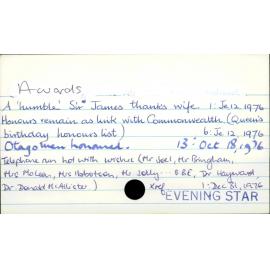 Awards
A 'humble' Sir James thanks wife. 1: Je 12, 1976
Honours remain as link with Commonwealth (Queen's
birthday honours list) 6: Je 12, 1976
Otago men honoured. 13: Oct 18, 1976
Telephone run hot with wishes (Mr Joel, Mr Bingham,
Mrs McLean, Mrs Ibbotson, Mr Jolly... OBE, Dr Hayward,
Dr Donald McAllister) xref 1: Dec 31, 1976
EVENING STAR